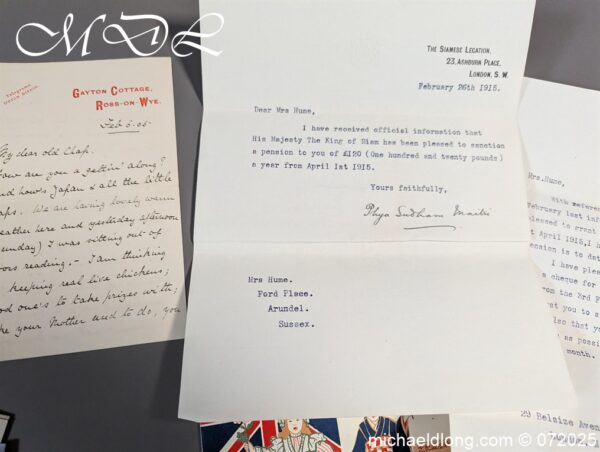 MDL
GAYTON COTTAGE,
ROSS-ON-WYE.
Feb 6. 05
My dear old Chap.
How are you a gettin' along?
and how's Japan & all the little
Japs. We are having lovely warm
weather here and yesterday afternoon
(Sunday) I was sitting out of
doors reading. - I am thinking
keeping real live chickens;
good one's to take prizes with;
like your Mother used to do, you
THE SIAMESE LEGATION,
23, ASHBURN PLACE,
LONDON, S.W.
February 26th 1915.
Dear Mrs Hume,
I have received official information that
His Majesty The King of Siam has been pleased to sanction
a pension to you of £120 (One hundred and twenty pounds)
a year from April 1st 1915.
Yours faithfully,
Phya Sudham Maitri
Mrs Hume.
Ford Place.
Arundel.
Sussex.
Mrs. Hume,
With refere
February last inf
pleased to grant
t April 1915, I h
pension is to dat
I have pleas
a cheque for
from the 3rd F
st you to s
lso that yo
as possi
month.
29 Belsize Aven
michaeldlong.com © 072025